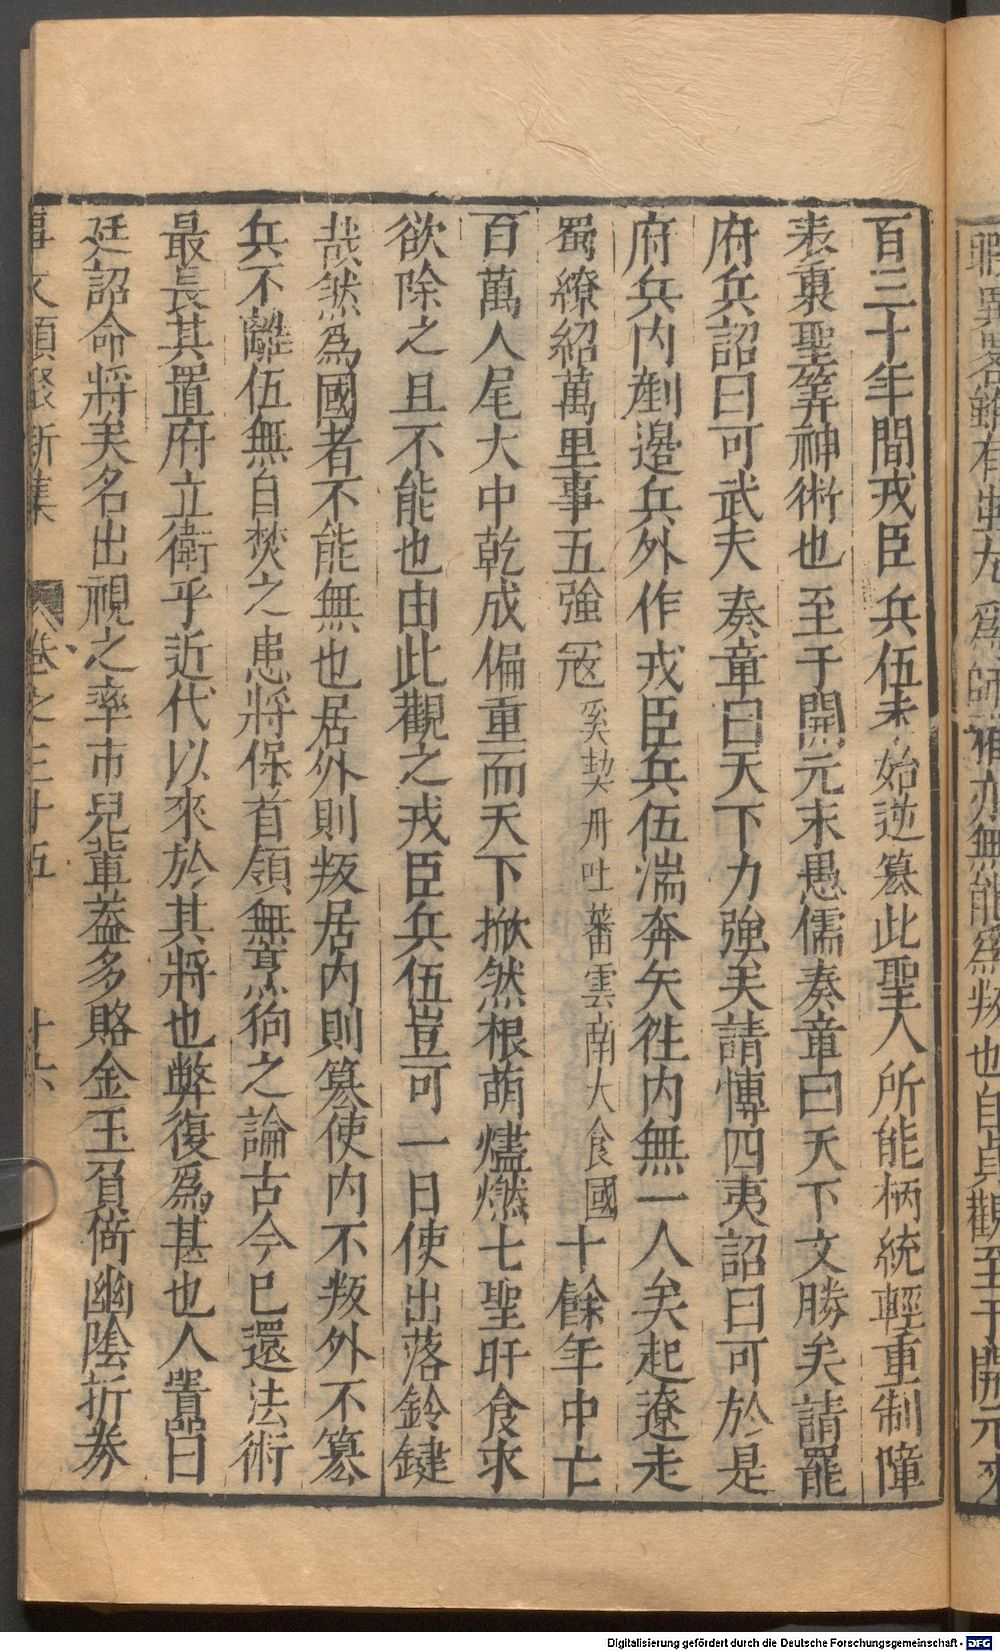 百三十年間戎臣兵伍未始逆篡此聖人所能柄統輕重制障
表裏聖筭神術也至于開元末愚儒奏章曰天下文勝矣請罷
府兵詔曰可武夫奏章曰天下力強矣請愽四夷詔曰可於是
府兵内剷邊兵外作戎臣兵伍湍奔矢徃内無一人矣起遼走
蜀繚紹萬里事五強冦奚契丹吐蕃雲南大食國十餘年中亡
百萬人尾大中乾成偏重而天下掀然根萌燼燃七聖旰食求
欲除之且不能也由此觀之戎臣兵伍豈可一日使出落鈴鍵
哉然爲國者不能無也居外則叛居内則篡使内不叛外不篡
兵不離伍無自焚之患將保首領無烹狗之論古今巳還法術
最長其置府立衛乎近代以來於其將也弊復爲甚也人嚣曰
廷詔命將矣名出視之率市兒輩葢多賂金玉負倚幽陰折券
事文類聚新集 卷之三十五 十六
爲師 亦無能爲叛也自貞觀至于開元末